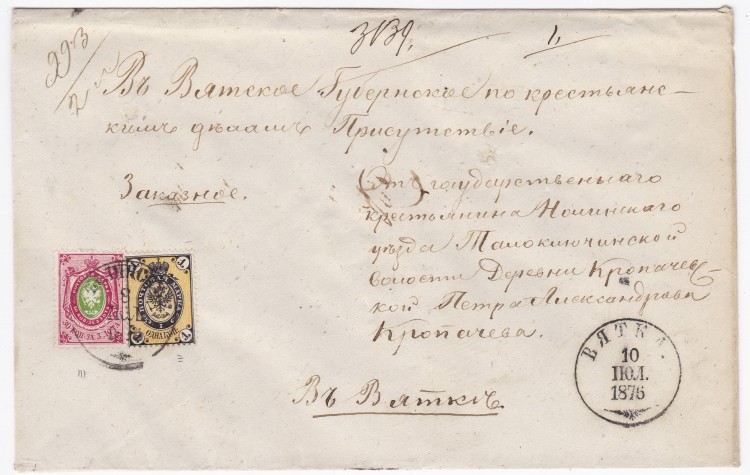 293
2
3139.
1,
Въ Вятское Губернское по крестьян-
скимъ дѣламъ Присутствіе.
Заказное.
Отъ государственнаго
крестьянина Нолинскаго
уѣзда Талоключинской
волости Деревни Кропачев-
ской Петра Александрова
Кропачева.
Въ Вяткѣ
ОДНА КОП.
1
1
1
1
ВЯТКА.
10
ІЮЛ.
1876